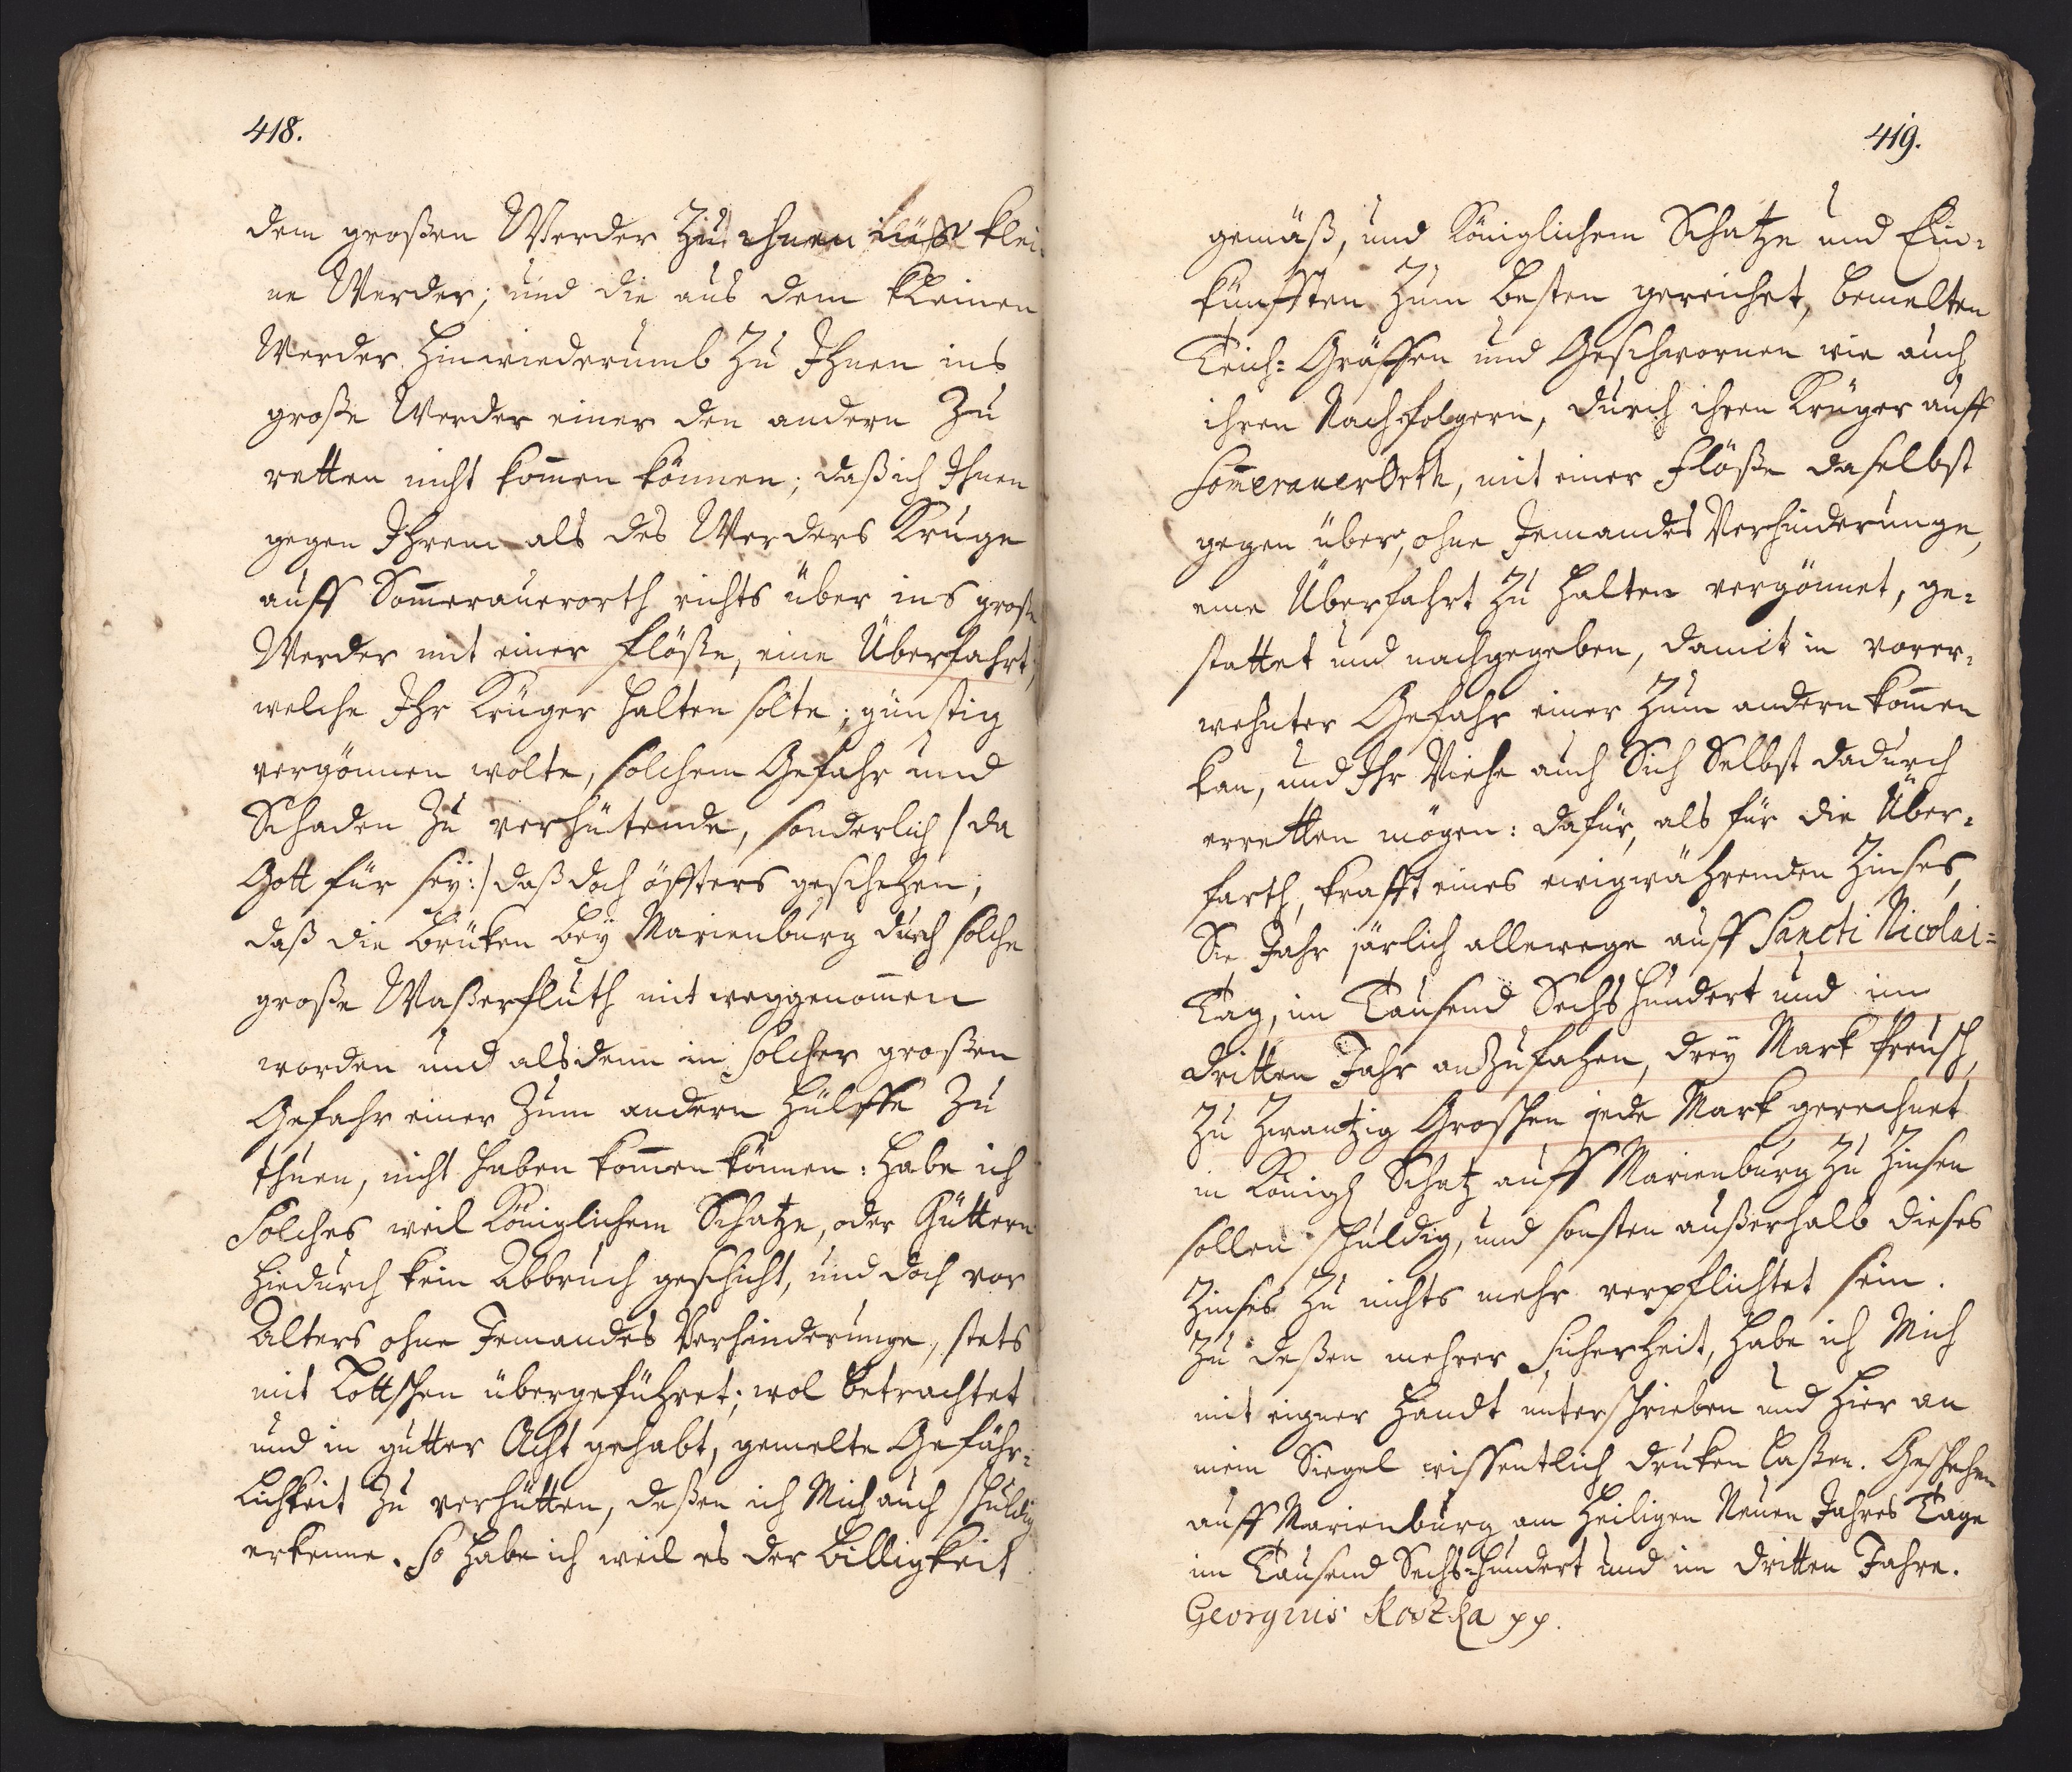 418.
dem großen Werder zu ihnen ins klei-
ne Werder; und die aus dem kleinen
Werder hinwiederumb zu Ihnen ins
große Werder einer den andern zu
retten nicht kom̄en können; daß ich Ihnen
gegen Ihrem als des Werders Kruge
auff Som̄erauerorth richts über ins große
Werder mit einer flöße, eine Überfahrt,
welche Ihr Krüger halten solte; günstig
vergönnen wolte, solchem Gefahr und
Schaden zu verhütende, sonderlich /: da
Gott für sey :/ daß doch öffters geschehen,
daß die Brüken bey Marienburg durch solche
große Waßerfluth mit weggenom̄en
worden und alsdenn in solcher großen
Gefahr einer zum andern Hülffe zu
thuen, nicht haben kom̄en können: habe ich
Solches weil Königlichem Schatze, oder Güttern
hiedurch kein Abbruch geschicht, und doch vor
Alters ohne Jemandes Verhinderunge, stets
mit Lottschen übergeführet; wol betrachtet
und in gutter Acht gehabt, gemelte Gefähr-
lichkeit zu verhütten, deßen ich Mich auch schuldig
erkenne. So habe ich weil es der Billigkeit
419.
gemäß, und Königlichem Schatze und Ein-
künfften zum besten gereichet, bemelten
Teich-Gräffen und Geschwornen wie auch
ihren Nachfolgern, durch ihren Krüger auff
Som̄erauerOrth, mit einer flöße daselbst
gegen über, ohne Jemandes Verhinderunge,
eine Überfahrt zu halten vergönnet, ge-
stattet und nachgegeben, damit in vorer-
wehnter Gefahr einer zum andern kom̄en
kan, und Ihr Viehe auch Sich Selbst dadurch
erretten mögen: dafür, als für die Über-
farth, krafft eines ewigwährenden Zinses,
Sie Jahr järlich allewege auff Sancti Nicolai-
Tag, im Tausend Sechshundert und im
dritten Jahr anzufahen, drey Mark Preusch,
zu zwantzig Groschen jede Mark gerechnet
in Königl Schatz auff Marienburg zu Zinsen
sollen schuldig, und sonsten außerhalb dieses
Zinses zu nichts mehr verpflichtet sein.
Zu deßen mehrer Sicherheit, habe ich Mich
mit eigner Handt unterschrieben und hier an
mein Siegel wissentlich druken laßen. Geschehen
auff Marienburg am Heiligen Neuen Jahres Tage
im Tausend Sechshundert und im dritten Jahre.
Georgius Kostka pp.